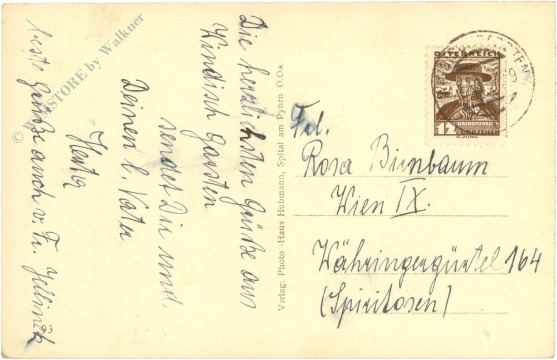 Die herzlichsten Grüße aus
Windisch Garsten
sendet Dir und
Deinen l. Vater
Herta
beste Grüße auch v. Fr.
© WEBSTORE by Walkner
93
Verlag: Photo-Haus Hubmann, Spital am Pyhrn O.Oe.
ÖSTERREICH
12 GROSCHEN
Frl.
Rosa Birnbaum
Wien IX.
Währingergürtel 164
(Spiritosen)